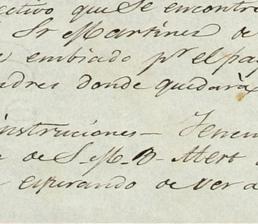 ectivo que se encontre
Sr Martines de
embiado pr el pa
dres donde quedará
instruciones – Tenem
de S. M. B. Mert
esperando de ver a